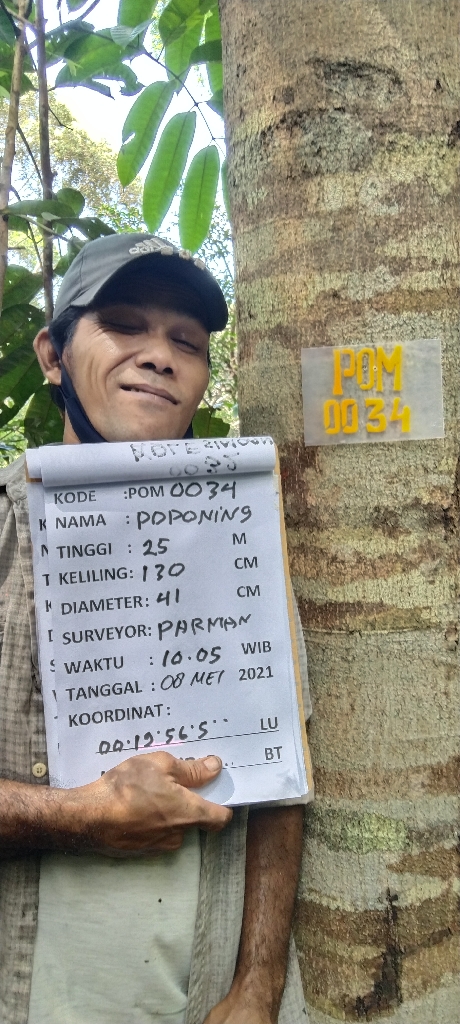 POM
0034
KODE :POM 0034
NAMA : POPONING
TINGGI : 25 M
KELILING: 130 CM
DIAMETER: 41 CM
SURVEYOR: PARMAN
WAKTU : 10.05 WIB
TANGGAL : 08 MEI 2021
KOORDINAT:
00°12'56.5'' LU
BT